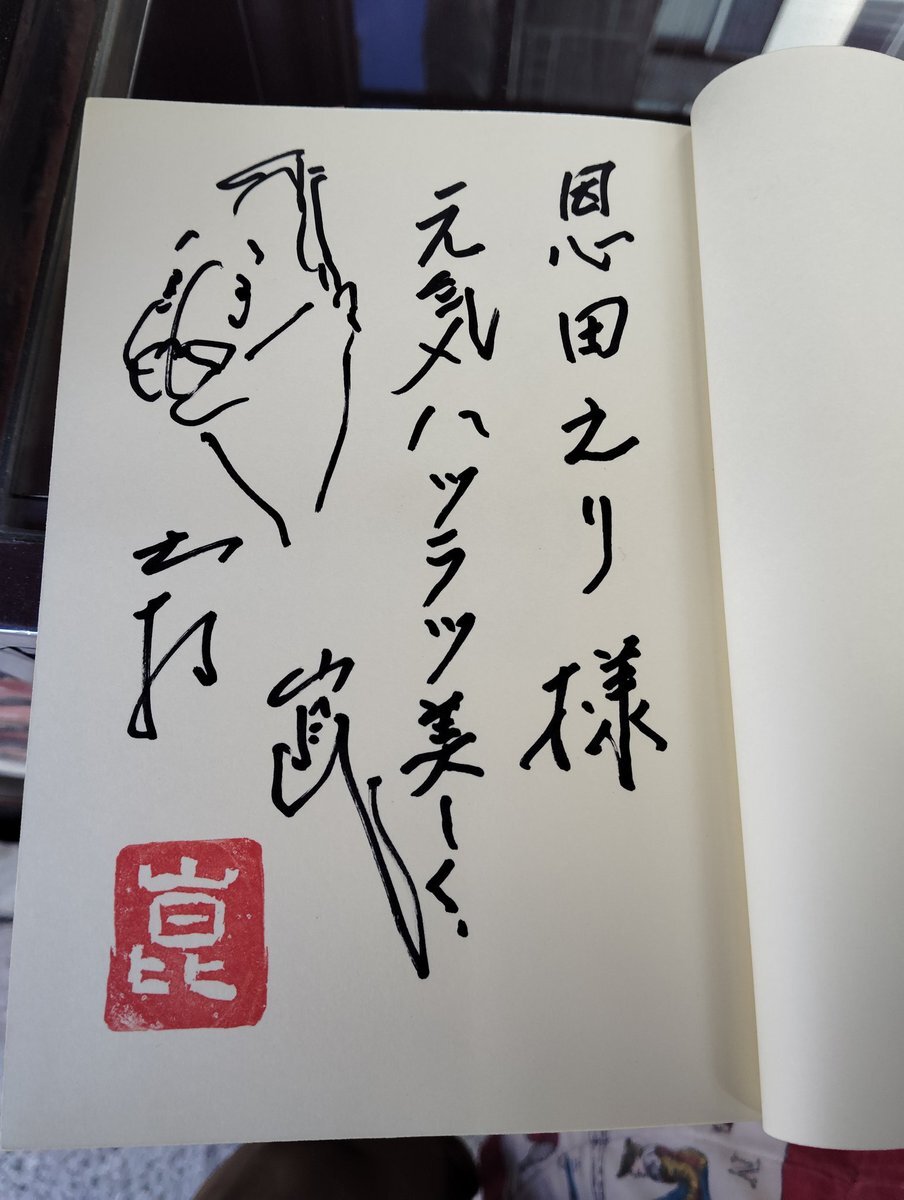 恩田えり様
元気ハツラツ美しく、
大村
崑
崑